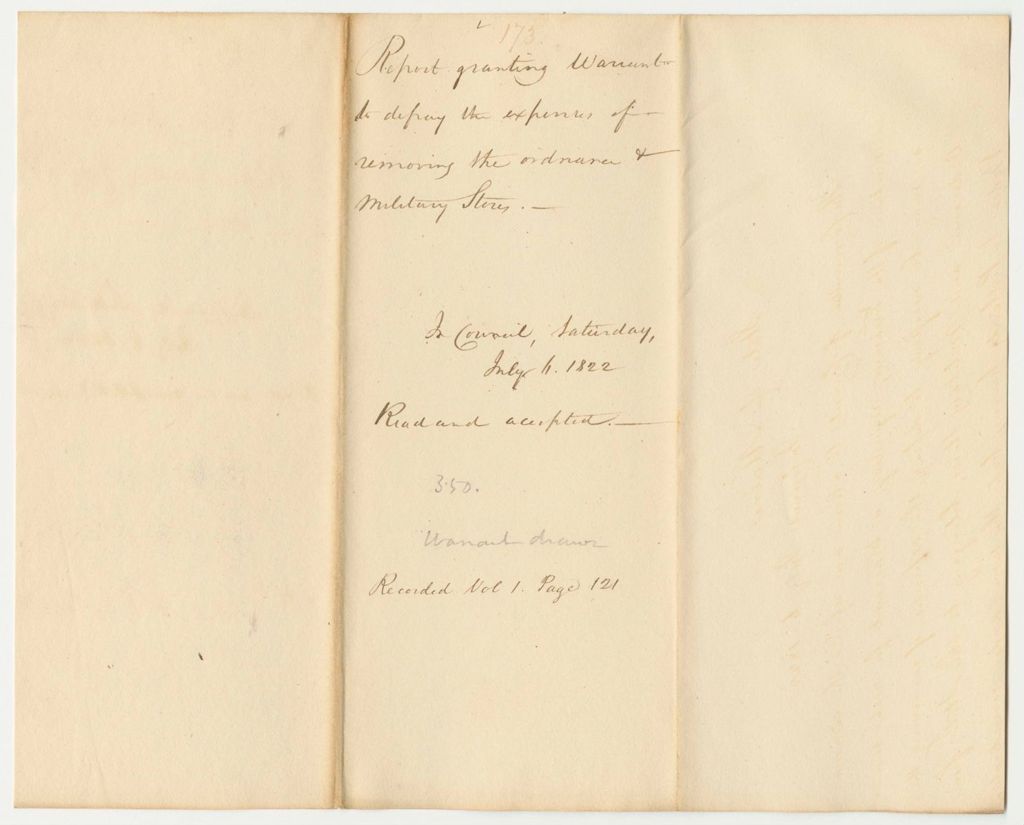 173.
Report granting Warrant
to defray the expenses of
removing the ordnance &
Military Stores. —
In Council, Saturday,
July 6. 1822
Read and accepted. —
350.
Warrant drawn
Recorded Vol 1. Page 121